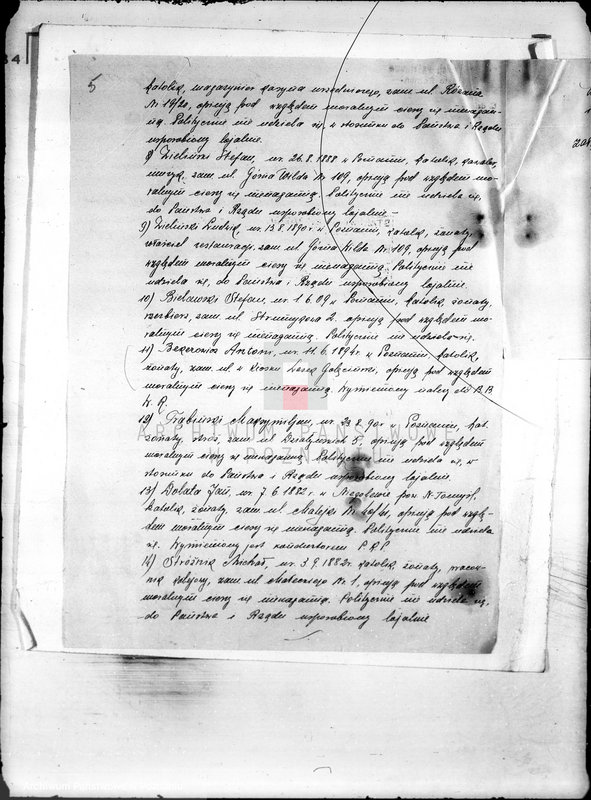 5
katolik, magazynier gazyna urzędniczego, zam. ul. Różana
Nr 19/20, opinją pod względem moralnym cieszy się nienagan-
ną. Politycznie nie udziela się, w stosunku do Państwa i Rządu
usposobiony lojalnie.
8) Zieliński Stefan, ur. 26.8.1888 w Poznaniu, katolik,
zam. ul. Górna Wilda Nr 109, opinją pod względem mo-
ralnym cieszy się nienaganną. Politycznie nie udziela się,
do Państwa i Rządu usposobiony lojalnie -
9) Zieliński Ludwik, ur. 13.8.1890 r. w Poznaniu, katolik, żonaty,
właściciel restauracji, zam. ul. Górna Wilda Nr 109, opinją pod
względem moralnym cieszy się nienaganną. Politycznie nie
udziela się, do Państwa i Rządu usposobiony lojalnie.
10) Stefan, ur. 1.6.09 w Poznaniu, katolik, żonaty,
zam. ul. Strumykowa 2, opinją pod względem mo-
ralnym cieszy się nienaganną. Politycznie nie udziela się.
11) Antoni, ur. 11.6.1894 r. w Poznaniu, katolik,
żonaty, zam. ul. opinją pod względem
moralnym cieszy się nienaganną. Wymieniony należy do B.B.
W.R.
12) Maksymiljan, ur. w Poznaniu, kat.
żonaty, stróż, zam. ul. Działyńskich 8, opinją pod względem
moralnym cieszy się nienaganną. Politycznie nie udziela się, w
stosunku do Państwa i Rządu usposobiony lojalnie.
13) Dobata Jan, ur. 7.6.1882 r. w pow. N-Tomyśl,
katolik, żonaty, zam. ul. Matejki Nr opinją pod wzglę-
dem moralnym cieszy się nienaganną. Politycznie nie udziela
się. Wymieniony jest konduktorem P.K.P.
14) Stróżna Michał, ur. 3.9.1882 r. katolik, żonaty, pracow-
nik kolejowy, zam. ul. Mateckiego Nr. 1, opinją pod względem
moralnym cieszy się nienaganną. Politycznie nie udziela się,
do Państwa i Rządu usposobiony lojalnie
ARCHIWUM PAŃSTWOWE
W POZNANIU